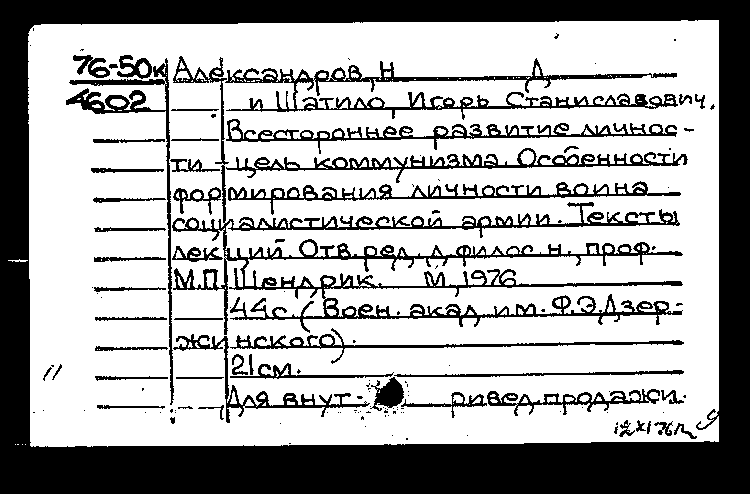 76-50к Александров, Н Д
4602 и Шатило, Игорь Станиславович.
Всестороннее развитие личнос-
ти - цель коммунизма. Особенности
формирования личности воина
социалистической армии. Тексты
лекций. Отв. ред. д. филос. н., проф.
М.П. Шендрик. М, 1976
44с. (Воен. акад им. Ф.Э.Дзер-
жинского).
21см.
11
Для внут- ривед.продажи.